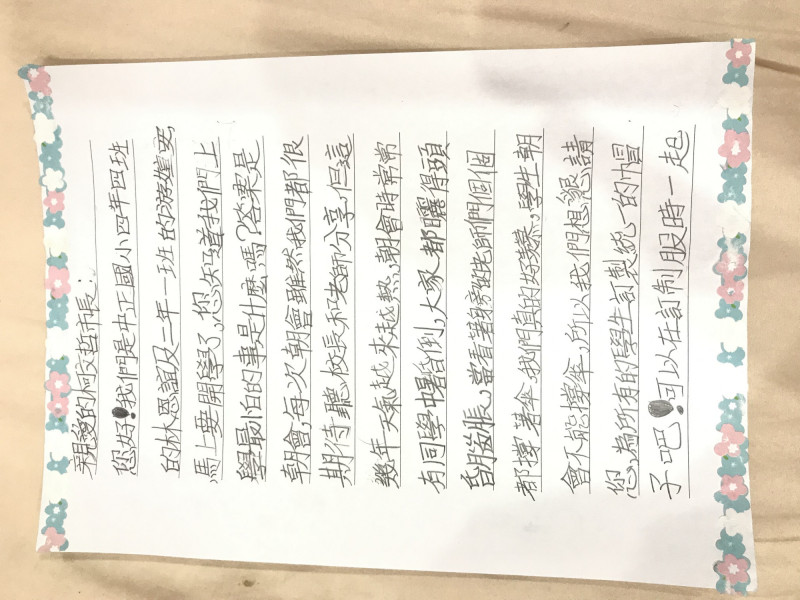 親愛的柯文哲市長：
您好！我們是中正國小四年四班
的林恩語及二年一班的游雅安，
馬上要開學了，您知道我們上
學最怕的事是什麼嗎？答案是
朝會，每次朝會雖然我們都很
期待聽校長和老師分享，但這
幾年天氣越來越熱，朝會時常常
有同學中暑昏倒，大家都曬得頭
昏腦脹，當看著旁邊老師們個個
都撐著傘，我們真的好羨慕，學生朝
會不能撐傘，所以我們想懇請
您，為所有的學生訂製統一的帽
子吧！可以在訂制服時一起